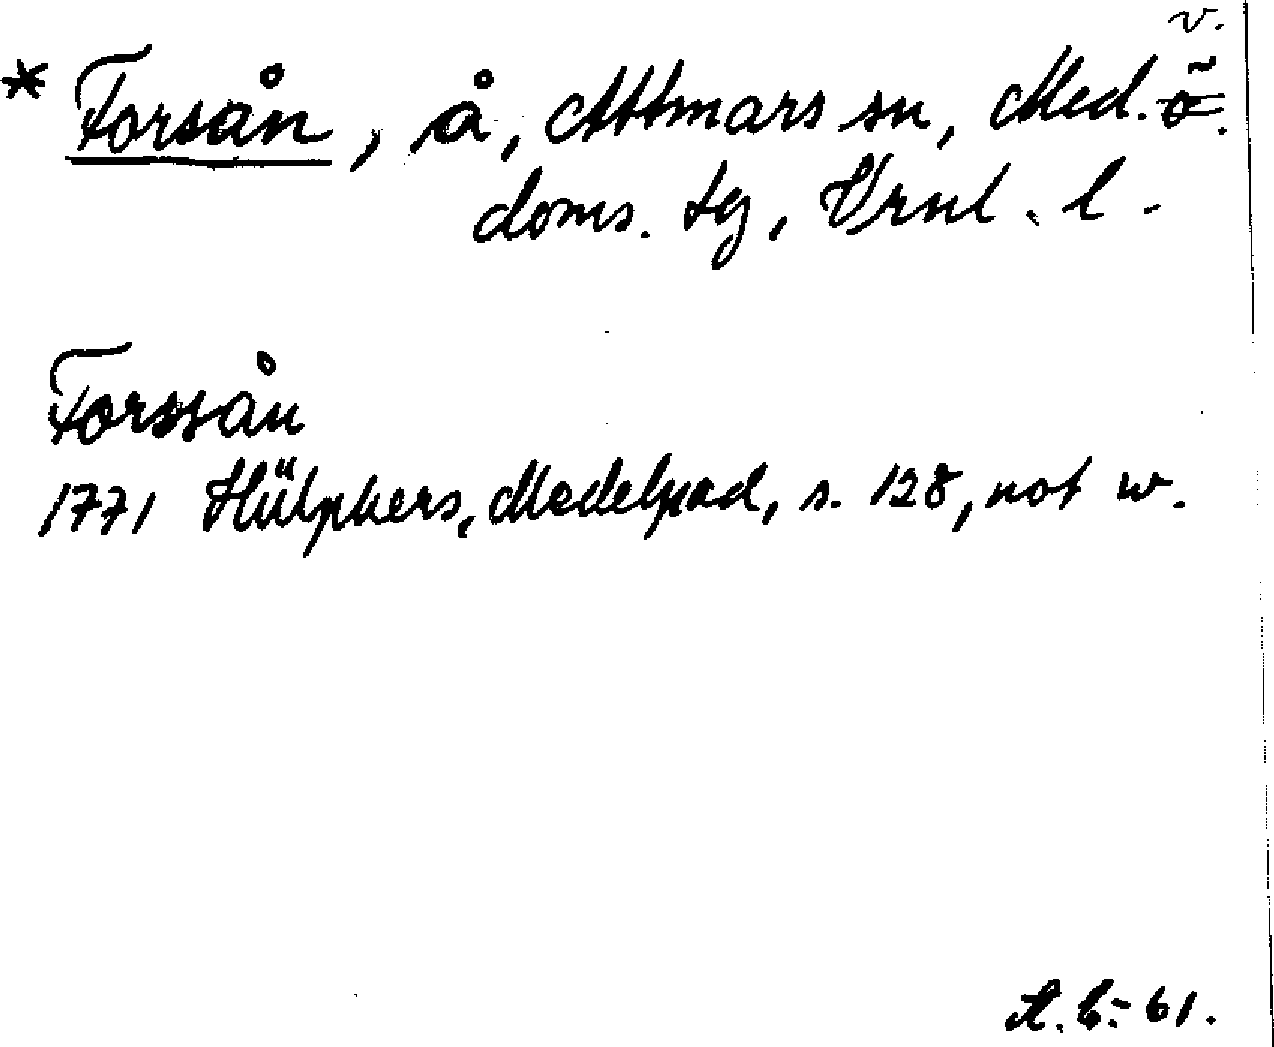 v.
* Forsån, å, Attmars sn, Med. ö.
doms. tg, Vrnl. l.
Forssån
1771 Hülphers, Medelpad, s. 128, not w.
A. C:- 61.